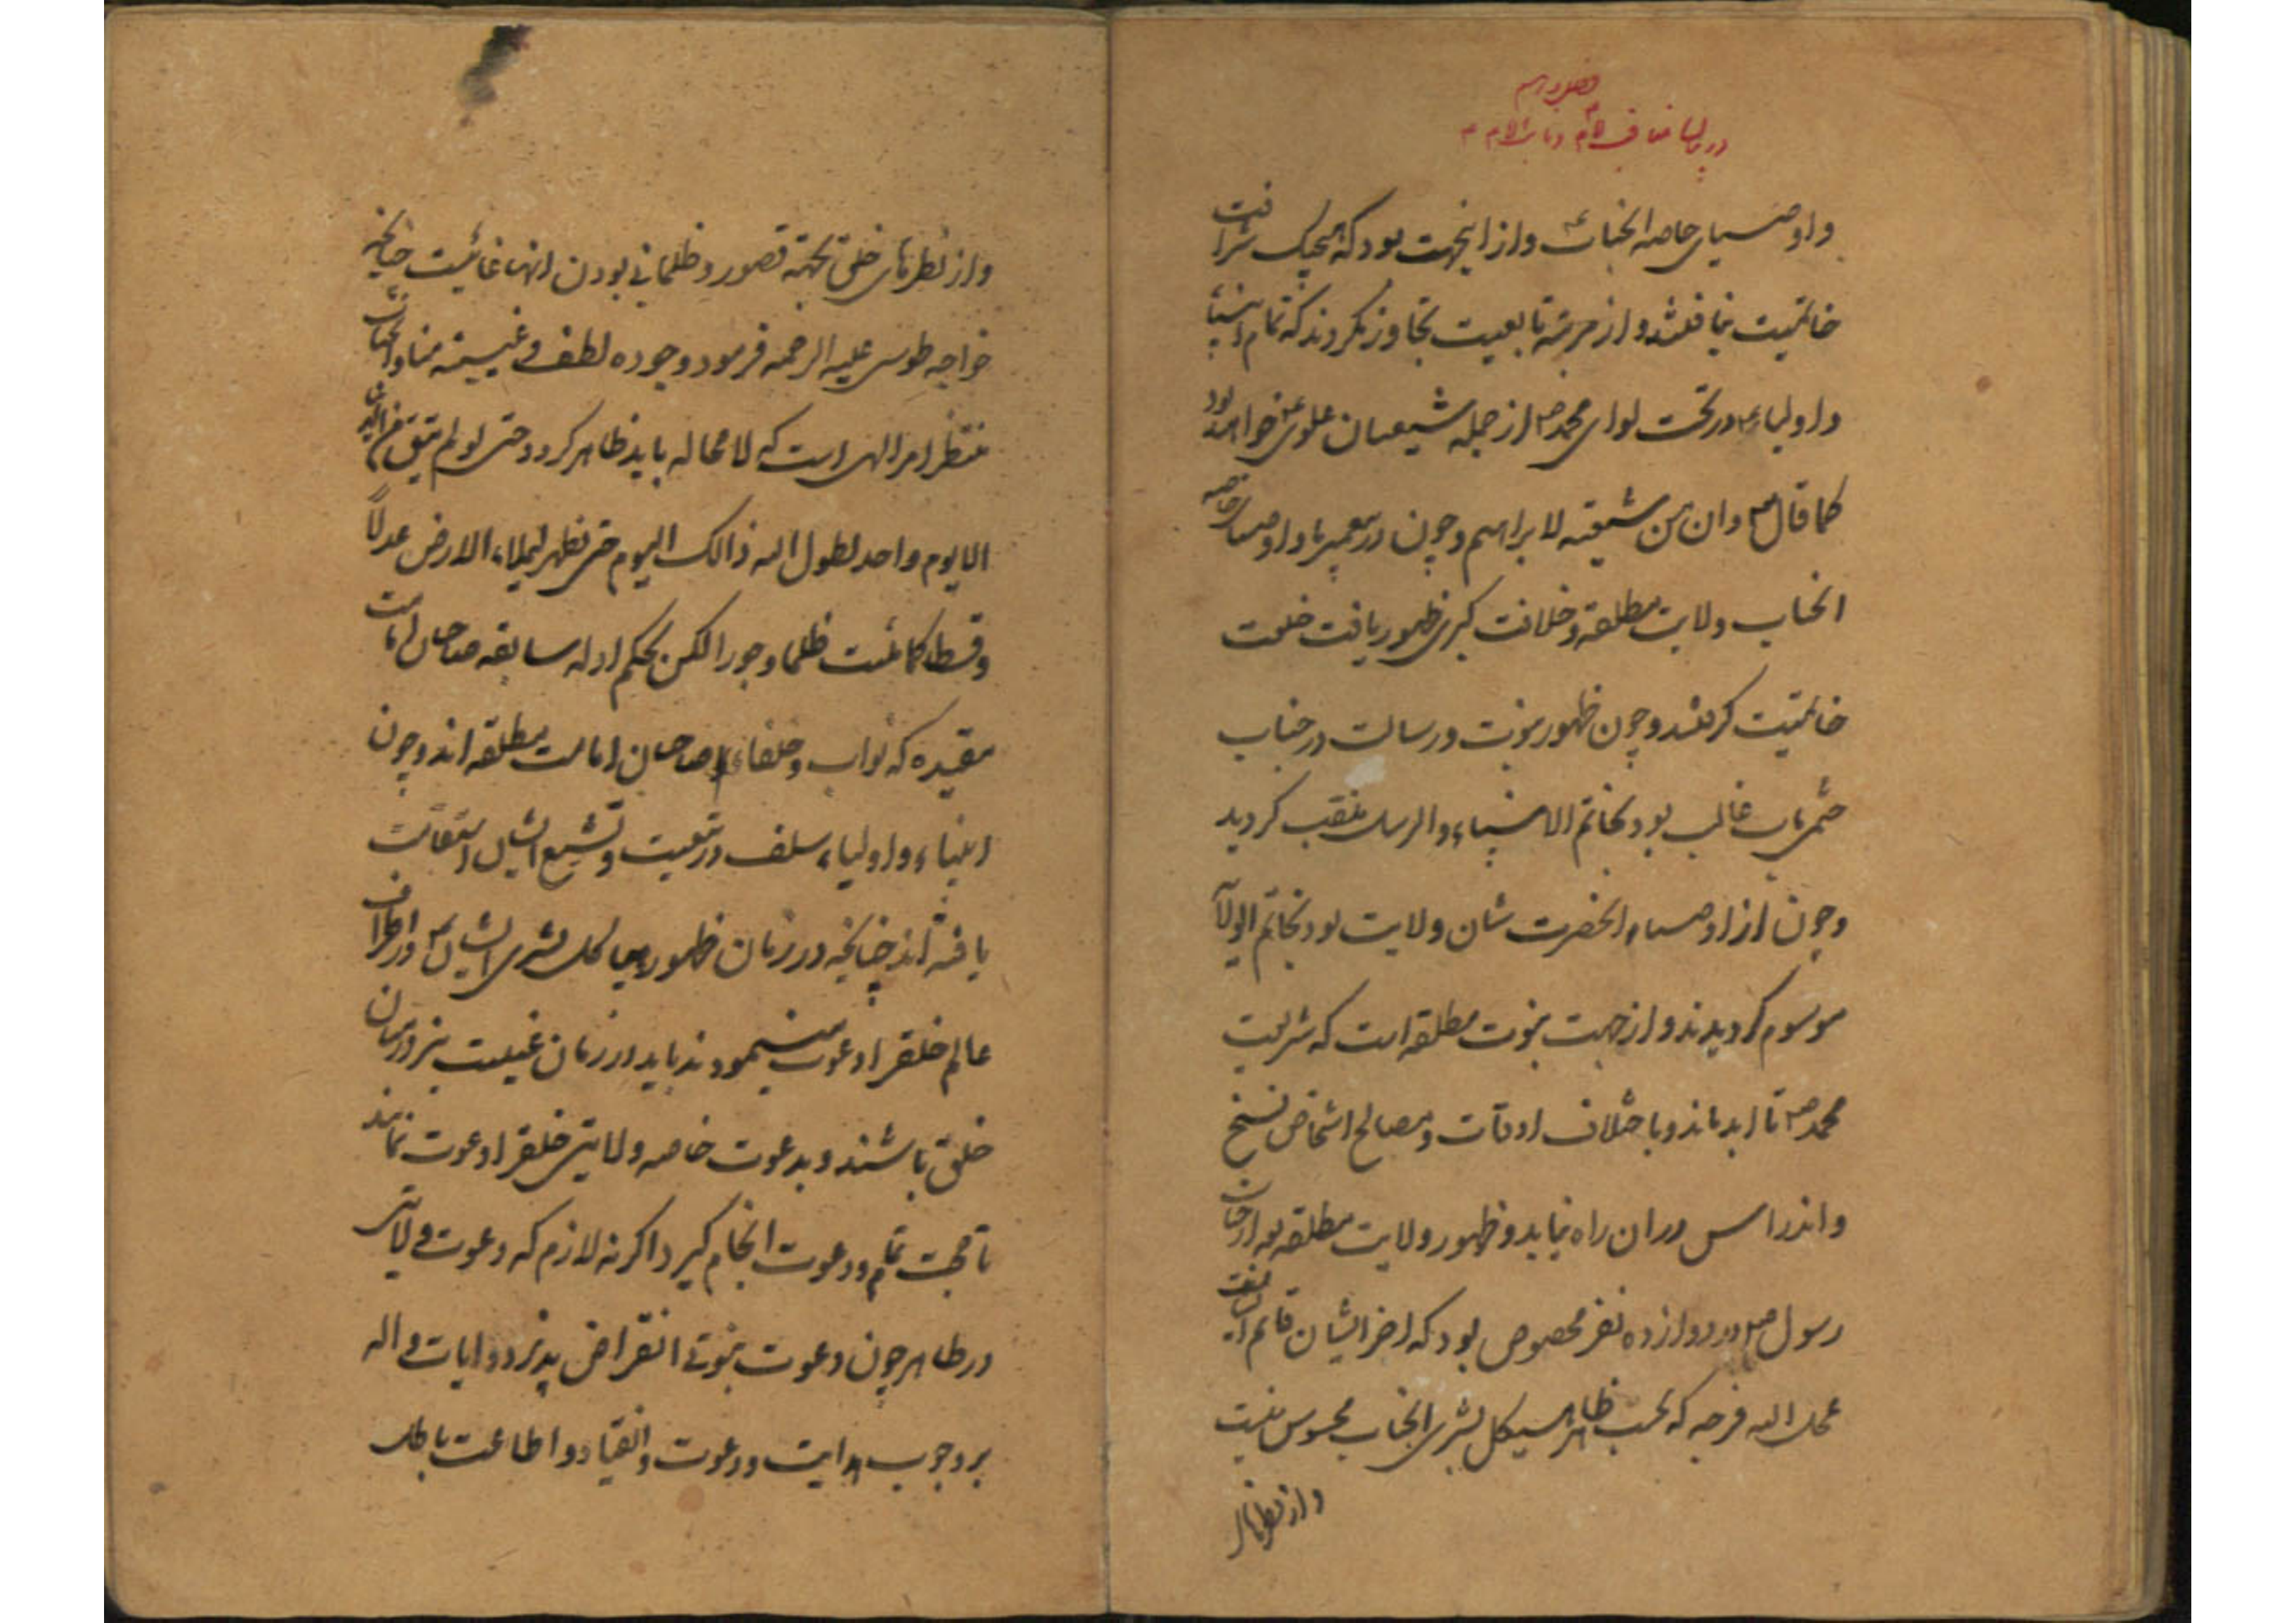 فصل دویم
در بیان
و اوصیای خاصه انجناب ع و از اینجهت بود که هیچیک شرافت
خاتمیت نیافتند و از مرتبه تابعیت تجاوز نکردند که تمام انبیا
و اولیاء ع در تحت لوای محمد ص از جمله شیعیان علوی ع خواهند بود
کما قال ص و ان من شیعته لابراهیم و چون در پیغمبر ما و اوصیای خاصه
انجناب ولایت مطلقه و خلافت کبری ظهور یافت خلعت
خاتمیت گرفتند و چون ظهور نبوت و رسالت در جناب
ختمی ماب غالب بود بخاتم الانبیاء و الرسل ملقب گردید
و چون از اوصیاء انحضرت شان ولایت بود بخاتم الولایة
موسوم گردیدند و از جهت نبوت مطلقه است که شریعت
محمد ص تا ابد ماند و باختلاف اوقات و مصالح اشخاص نسخ
و اندراس در ان راه نیابد و ظهور ولایت مطلقه بعد از جناب
رسول ص در دوازده نفر مخصوص بود که اخر ایشان قائم است
عجل اله فرجه که بحسب ظاهر هیکل بشری انجناب محسوس نیست
و از نظرهای
و از نظرهای خلق بجهة قصور و ظلمانی بودن انها غائبست چنانچه
خواجه طوسی علیه الرحمه فرمود وجوده لطف و غیبته منا و انجناب
منتظر امر الهی است که لا محاله باید ظاهر گردد حتی لو لم یبق من الدنیا
الا یوم واحد لطول اله ذالک الیوم حتی یظهر لیملاء الارض عدلاً
و قسطا کما ملئت ظلما و جورا لکن بحکم ادله سابقه صاحبان امامت
مقیده که نواب و خلفاء صاحبان امامت مطلقه اند و چون
انبیاء و اولیاء سلف در تبعیت و تشیع ایشان استقامت
یافته اند چنانچه در زمان ظهور هیاکل بشری ایشان ع در اطراف
عالم خلقرا دعوت مینمودند باید در زمان غیبت نیز در میان
خلق باشند و بدعوت خاصه ولایتی خلقرا دعوت نمایند
تا حجت تمام و دعوت انجام گیرد اگر نه لازم که دعوت ولایتی
در ظاهر چون دعوت نبوتی انقراض پذیرد و ایات داله
بر وجوب هدایت و دعوت و انقیاد و اطاعت باطل